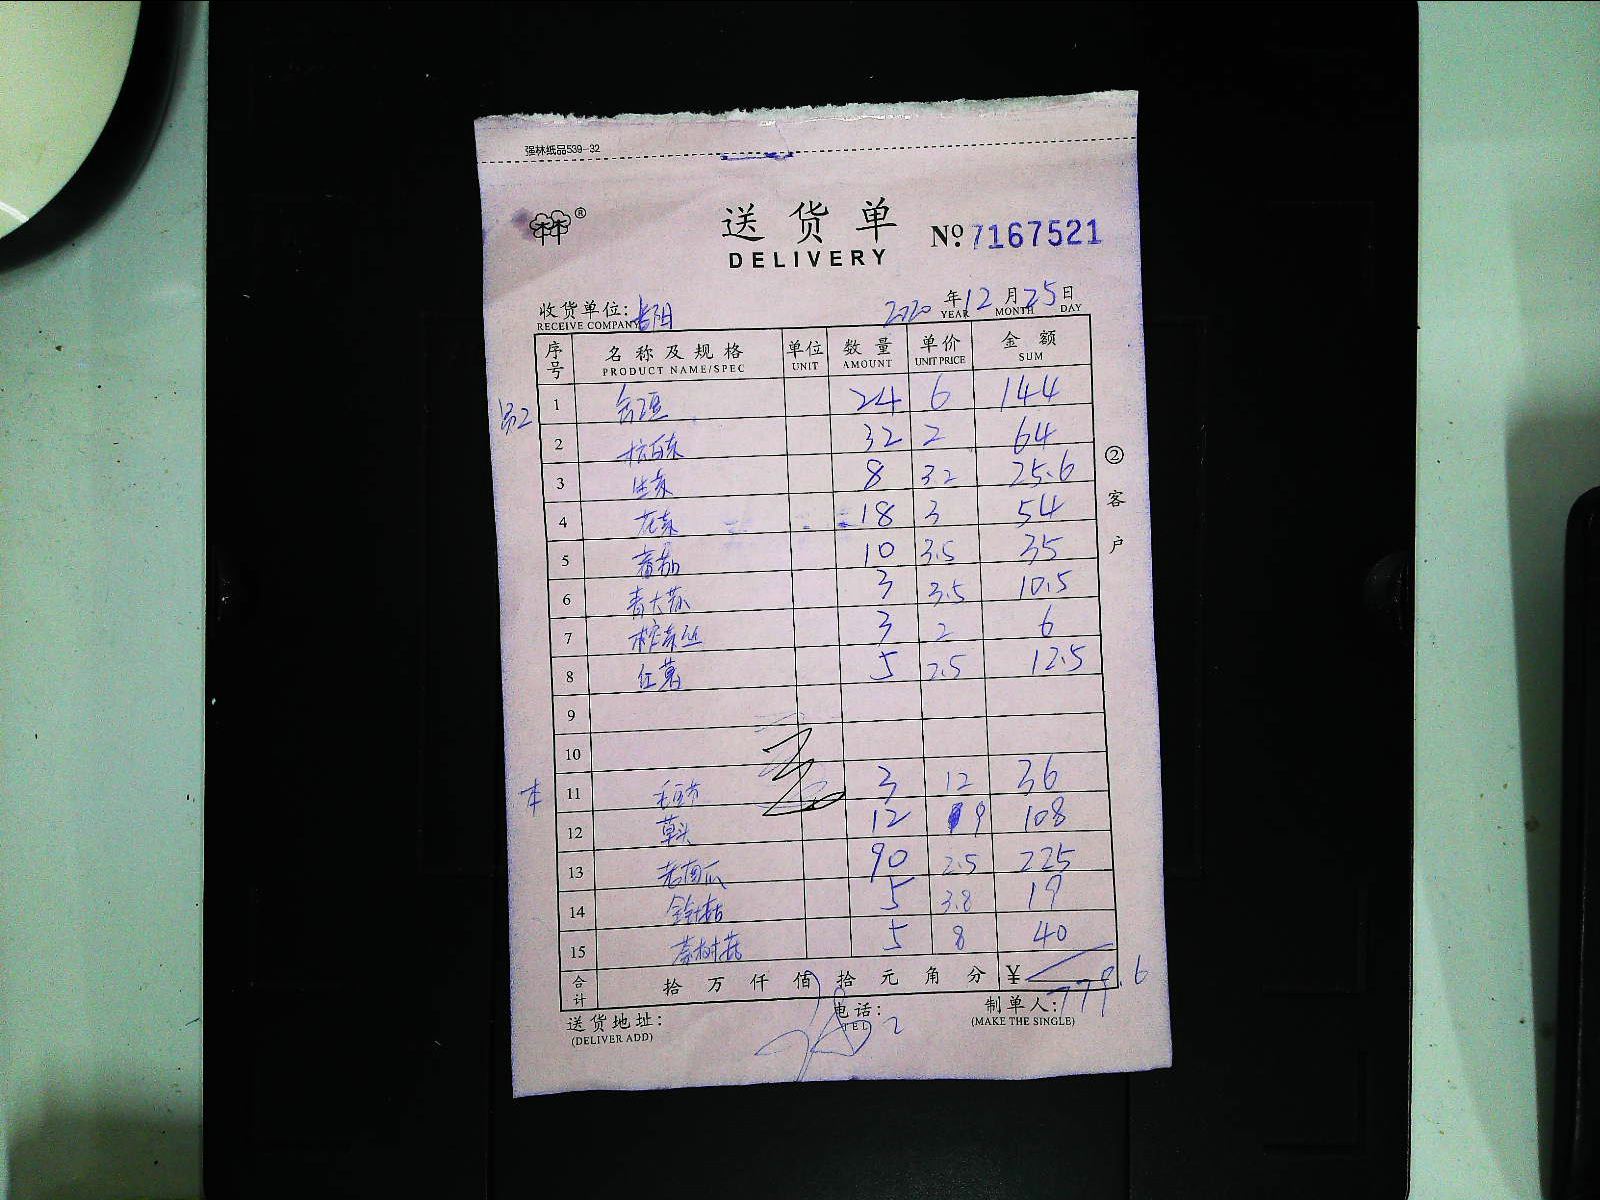 强林纸品539-32
林®
送货单 No. 7167521
DELIVERY
收货单位: 2020 年 12 月 25 日
RECEIVE COMPANY YEAR MONTH DAY
序号 名称及规格 单位 数量 单价 金额
PRODUCT NAME/SPEC UNIT AMOUNT UNIT PRICE SUM
1 24 6 144
2 杭白菜 32 2 64
3 生菜 8 3.2 25.6
4 花菜 18 3 54
5 番茄 10 3.5 35
6 青大蒜 3 3.5 10.5
7 榨菜丝 3 2 6
8 红薯 5 2.5 12.5
9
10
11 毛豆节 3 12 36
12 草头 12 9 108
13 老南瓜 90 2.5 225
14 金针菇 5 3.8 19
15 茶树菇 5 8 40
合计 拾 万 仟 佰 拾 元 角 分 ¥ 779.6
送货地址: 电话: 制单人:
(DELIVER ADD) TEL (MAKE THE SINGLE)
②客户